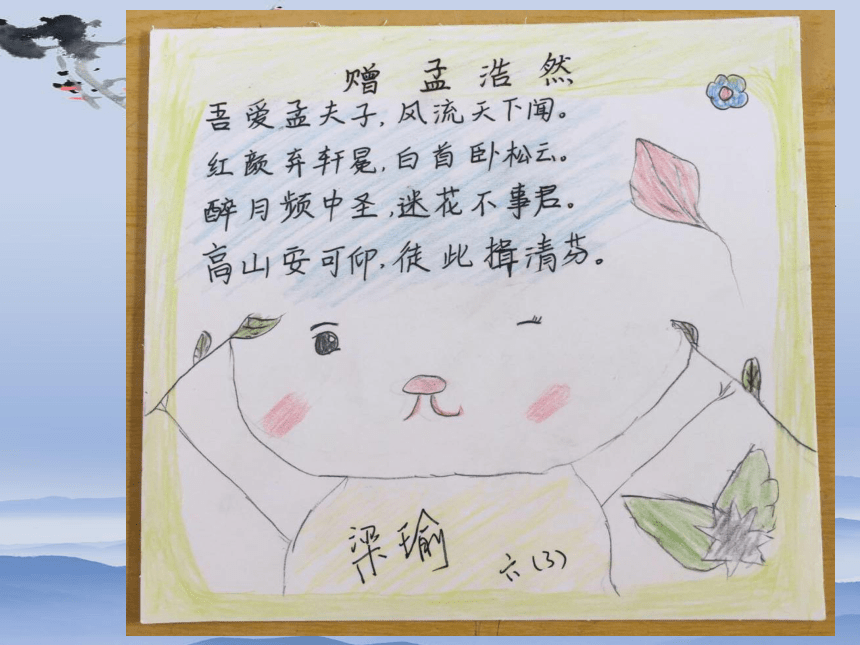 赠孟浩然
吾爱孟夫子,风流天下闻。
红颜弃轩冕,白首卧松云。
醉月频中圣,迷花不事君。
高山安可仰,徒此揖清芬。
梁瑜
六(3)